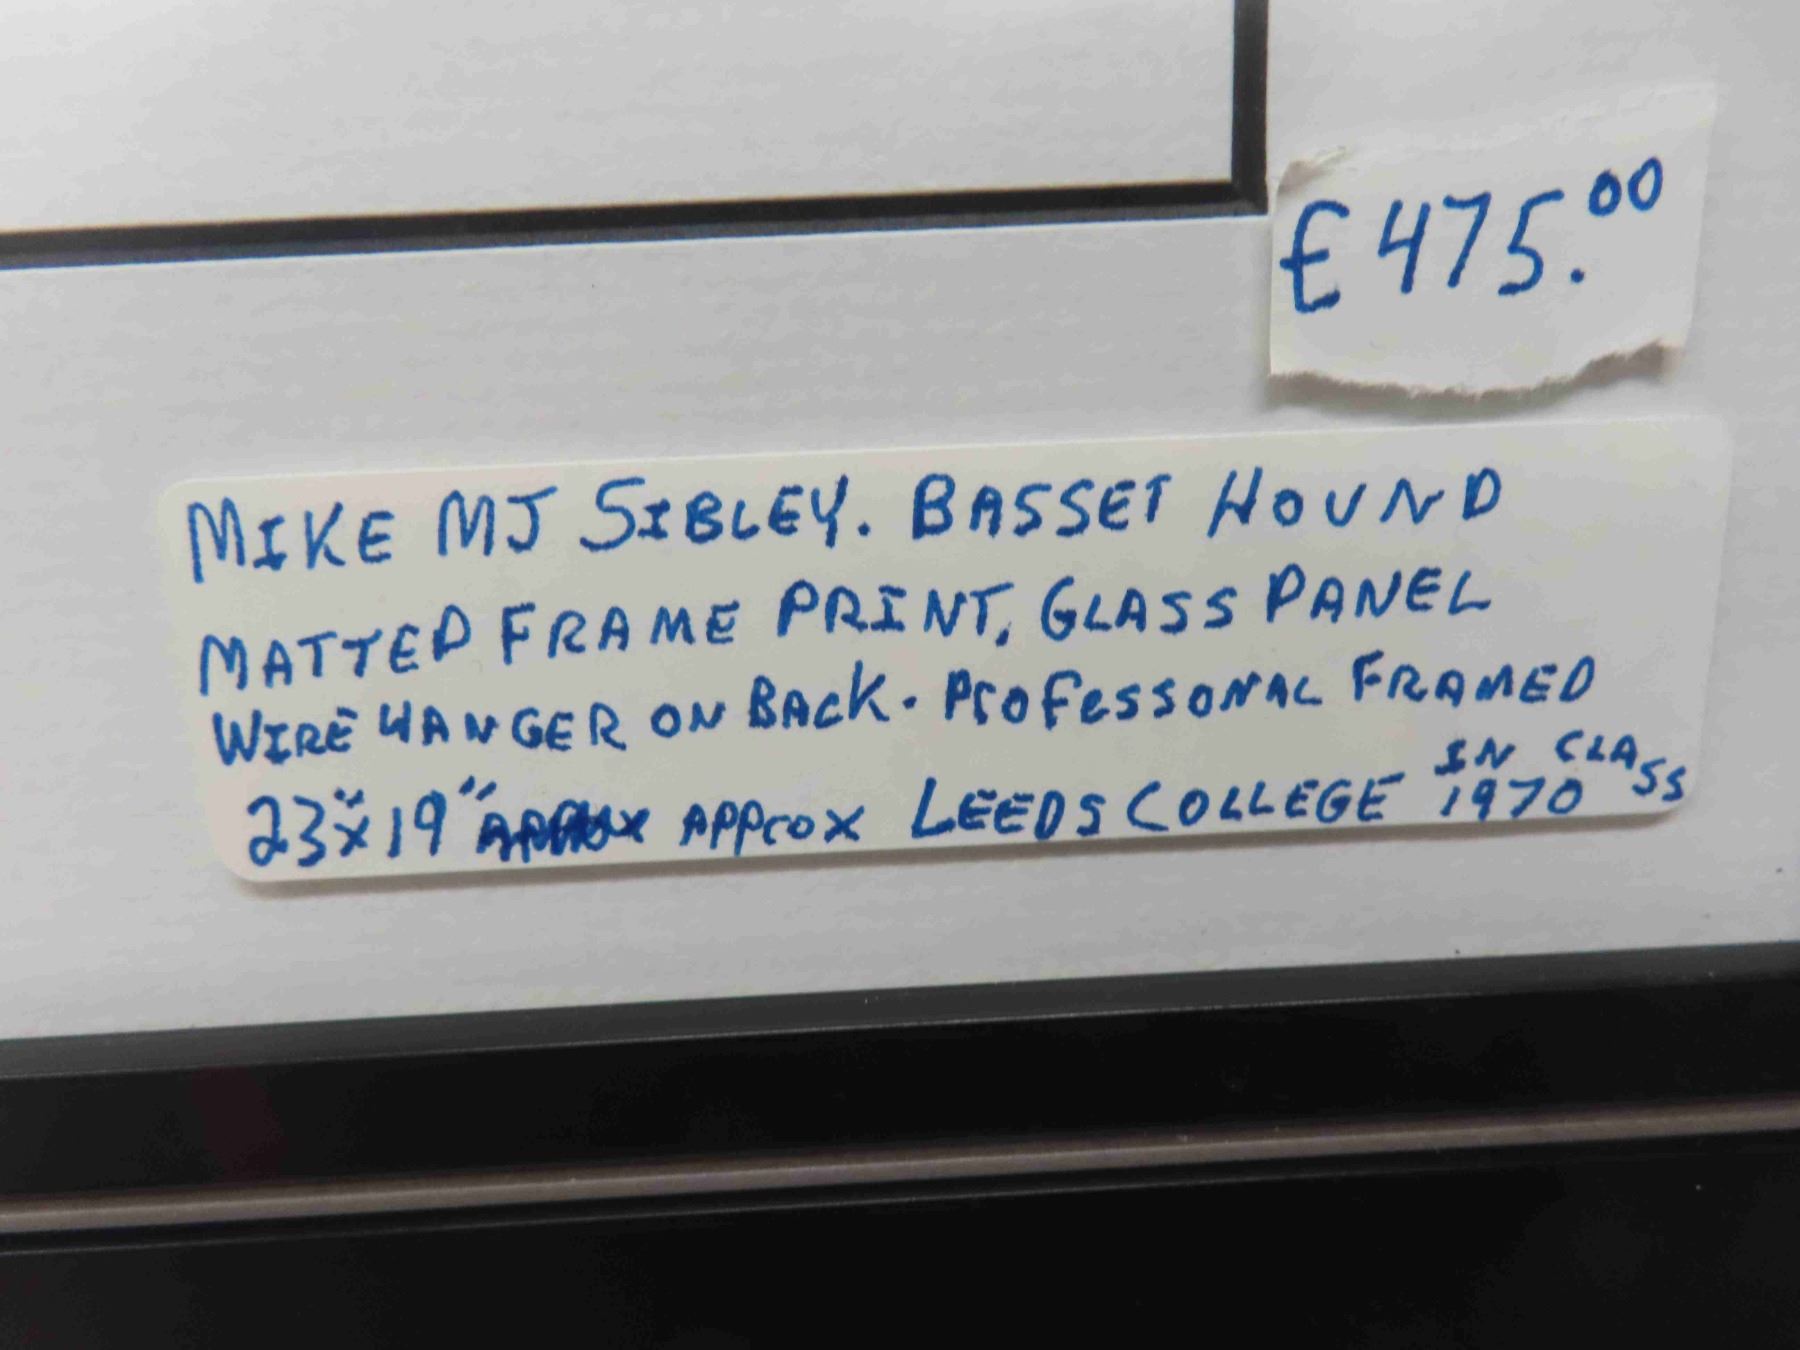 £475.00
MIKE MJ SIBLEY. BASSET HOUND
MATTED FRAME PRINT, GLASS PANEL
WIRE HANGER ON BACK. Professonal FRAMED
23"x19" Approx LEEDS COLLEGE 1970 IN CLASS